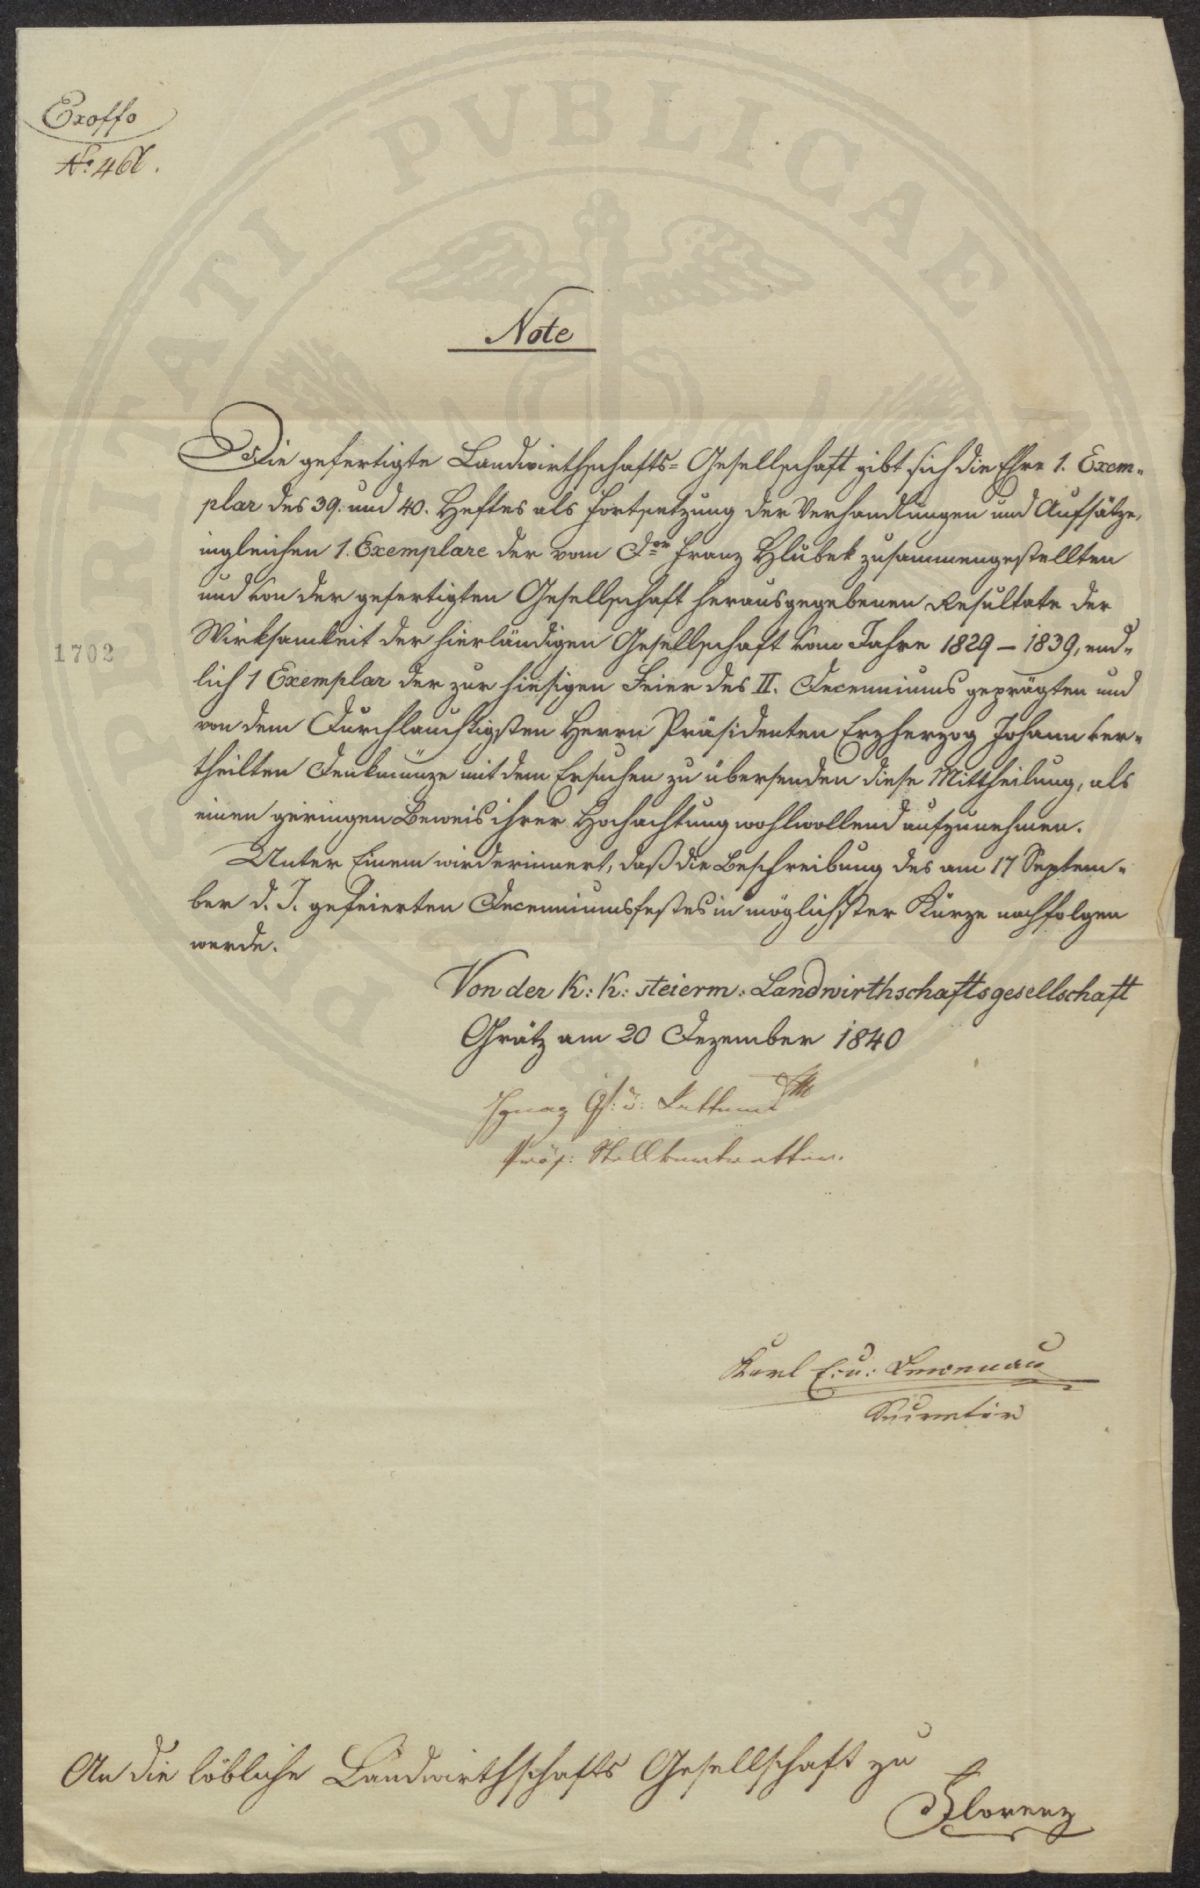 Exoffo
No. 468.
Note
Die gefertigte Landwirthschafts-Gesellschaft gibt sich die Ehre 1. Exem-
plar des 39. und 40. Heftes als Fortsetzung der Verhandlungen und Aufsätze,
ingleichen 1. Exemplare der vom Dor Franz Hlubek zusammengestellten
und von der gefertigten Gesellschaft herausgegebenen Resultate der
Wirksamkeit der hierländigen Gesellschaft vom Jahre 1829 – 1839, end-
1702
lich 1 Exemplar der zur hiesigen Feier des II. Decenniums geprägten und
von dem Durchlauchtigsten Herrn Präsidenten Erzherzog Johann ver-
theilten Denkmünze mit dem Ersuchen zu übersenden diese Mittheilung, als
einen geringen Beweis ihrer Hochachtung wohlwollend aufzunehmen.
Unter Einem wird erinnert, daß die Beschreibung des am 17 Septem-
ber d. J. gefeierten Decenniumsfestes in möglichster Kürze nachfolgen
werde.
Von der K: K: steierm: Landwirthschaftsgesellschaft
Grätz am 20 Dezember 1840
Ignaz Gf: v: Attems
Präs: Stellvertretter.
Karl
Secretär
An die löbliche Landwirthschafts Gesellschaft zu
Florenz
PUBLICAE